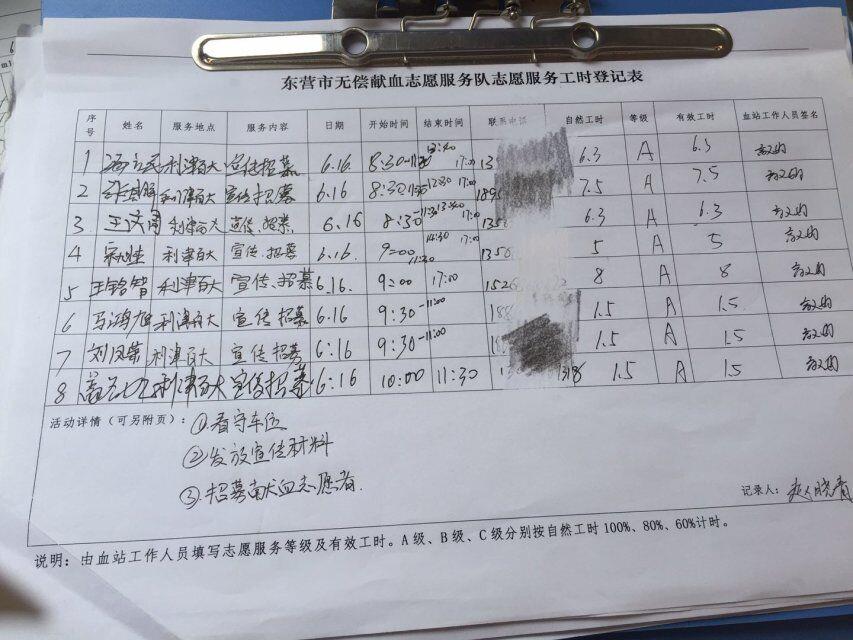 东营市无偿献血志愿服务队志愿服务工时登记表
序号 姓名 服务地点 服务内容 日期 开始时间 结束时间 联系电话 自然工时 等级 有效工时 血站工作人员签名
1 利津百大 宣传招募 6.16 8:30-11:30 13:40 17:00 13 6.3 A 6.3
2 利津百大 宣传招募 6.16 8:30-11:30 12:30 17:00 189 7.5 A 7.5
3 王文周 利津百大 宣传、招募 6.16 8:30 17:00 135 6.3 A 6.3
4 利津百大 宣传、招募 6.16. 9:00 11:30 14:30 17:00 1350 5 A 5
5 王铭智 利津百大 宣传、招募 6.16. 9:00 17:00 1526 8 A 8
6 利津百大 宣传 招募 6.16 9:30-11:00 188 1.5 A 1.5
7 刘凤荣 利津百大 宣传 招募 6:16 9:30-11:00 1.5 A 1.5
8 利津百大 宣传招募 6:16 10:00 11:30 1.5 A 1.5
活动详情(可另附页):①.看守车位
②发放宣传材料
③.招募献血志愿者.
记录人:赵晓青
说明:由血站工作人员填写志愿服务等级及有效工时。A级、B级、C级分别按自然工时100%、80%、60%计时。